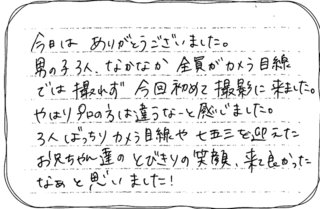 今日は ありがとうございました。
男の子3人、なかなか 全員がカメラ目線
では撮れず 今回初めて撮影に来ました。
やはりプロの方は違うなーと感じました。
3人ばっちりカメラ目線や 七五三を迎えた
お兄ちゃん達の とびきりの笑顔、来て良かった
なぁと思いました!